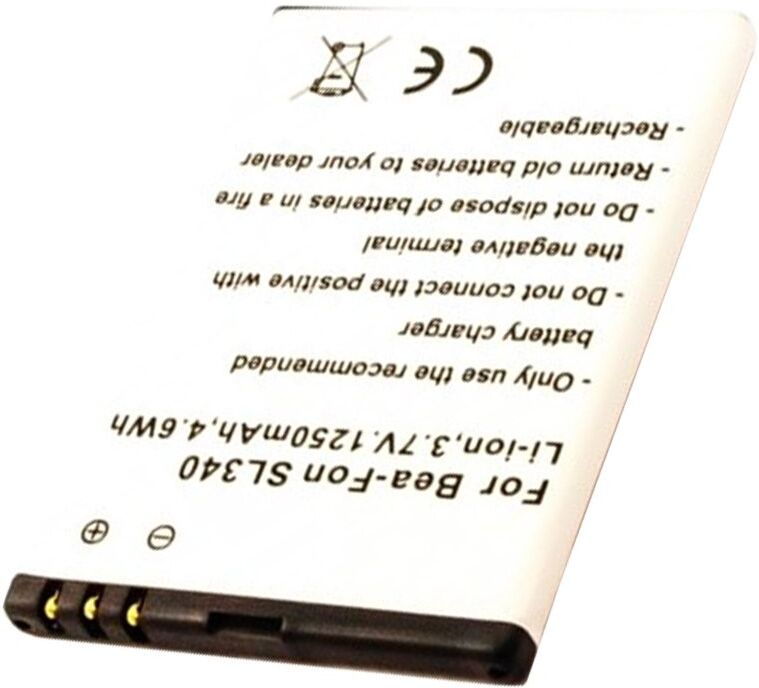 For Bea-Fon SL340
Li-ion,3.7V.1250mAh,4.6Wh
- Only use the recommended
battery charger
- Do not connect the positive with
the negative terminal
- Do not dispose of batteries in a fire
- Return old batteries to your dealer
- Rechargeable
CE